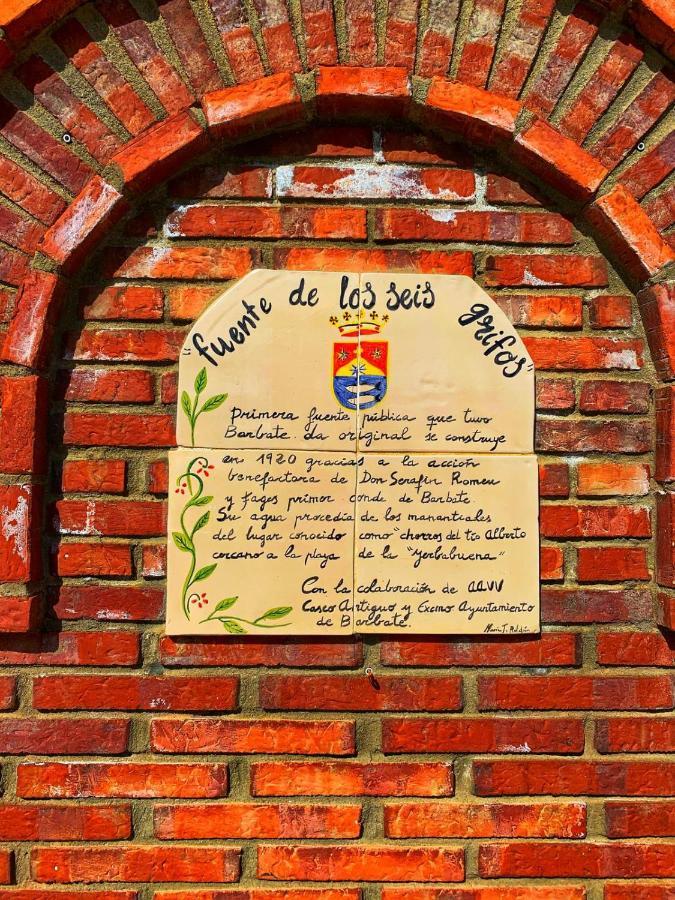 "fuente de los seis grifos"
Primera fuente pública que tuvo
Barbate. La original se construye
en 1920 gracias a la acción
benefactora de Don Serafín Romeu
y fages primer conde de Barbate.
Su agua procedía de los manantiales
del lugar conocido como "chorros del tío Alberto
cercano a la playa de la "yerbabuena"
Con la colaboración de AA.VV
Casco Antiguo y Excmo Ayuntamiento
de Barbate.